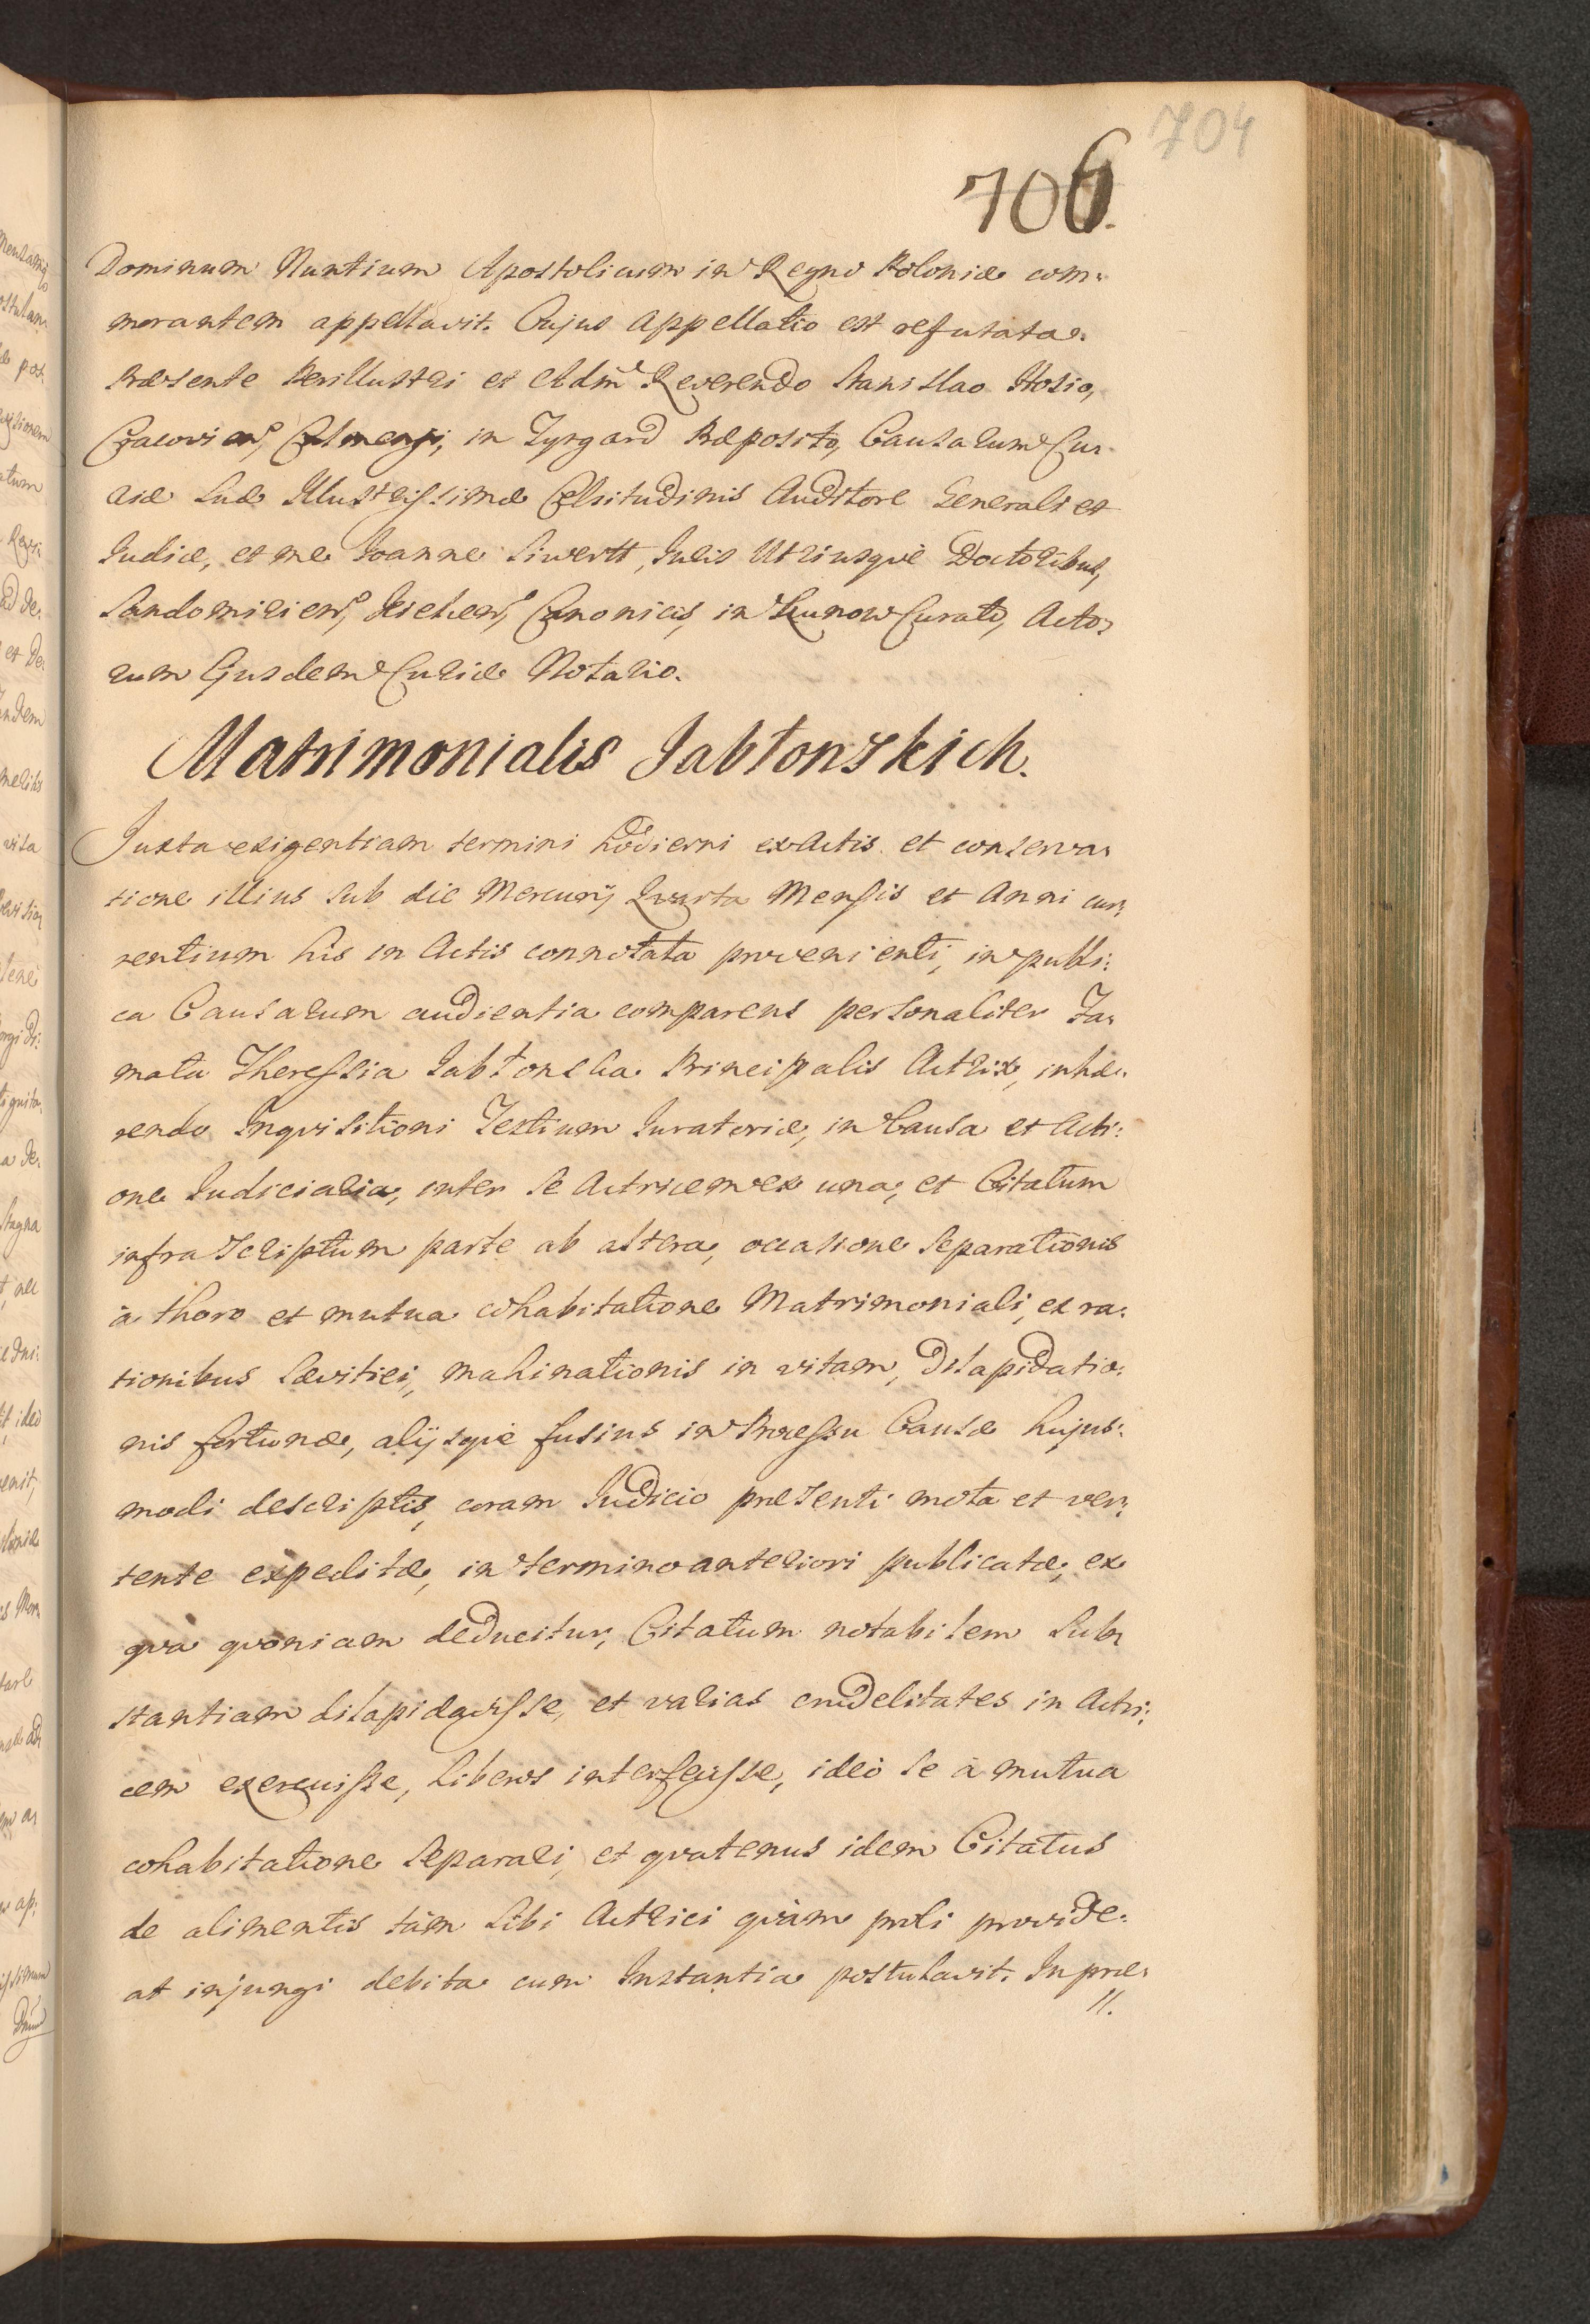 704
706.
Dominum Nuntium Apostolicum in Regno Poloniæ com:
morantem appellavit. Cujus Appellatio est refutata.
Præsente Perillustri et Adm̃ Reverendo Stanislao Hosio,
Cracovien, Culmensi, in Tyrgard Præposito, Causarum Cu:
riæ Suæ Illustrissimæ Celsitudinis Auditore Generali et
Iudice, et me Ioanne Siwertt, Iuris Utriusqve Doctoribus,
Sandomirien, Kielcen, Canonicis, in Kunow Curato, Acto:
rum Ejusdem Curiæ Notario.
Matrimonialis Jabłonskich.
Juxta exigentiam termini hodierni ex Actis et conserva:
tione illius sub die Mercurij Qvarta Mensis et Anni cur:
rentium his in Actis connotata provenienti, in publi:
ca Causarum audientia comparens personaliter Fa:
mata Theressia Jabłonska Principalis Actrix, inhæ:
rendo Inqvisitioni Testium Iuratoriæ, in Causa et Acti:
one Iudiciaria, inter se Actricem ex una, et Citatum
infra Scriptum parte ab altera, occasione Separationis
à thoro et mutua cohabitatione Matrimoniali, ex ra:
tionibus Sævitiei, mahinationis in vitam, Dilapidatio:
nis fortunæ, alijsqvè fusius in Processu Causæ hujus:
modi descriptis, coram Iudicio præsenti mota et ver:
tente expeditæ, in termino anteriori publicatæ, ex
qva qvoniam deducitur, Citatum notabilem Sub:
stantiam dilapidavisse, et varias crudelitates in Actri:
cem exercuisse, liberos interfecisse, ideò se à mutua
cohabitatione Separari, et qvatenus idem Citatus
de alimentis tàm Sibi Actrici qvàm proli provide:
at injungi debita cum Instantia postulavit. In præ:
//.